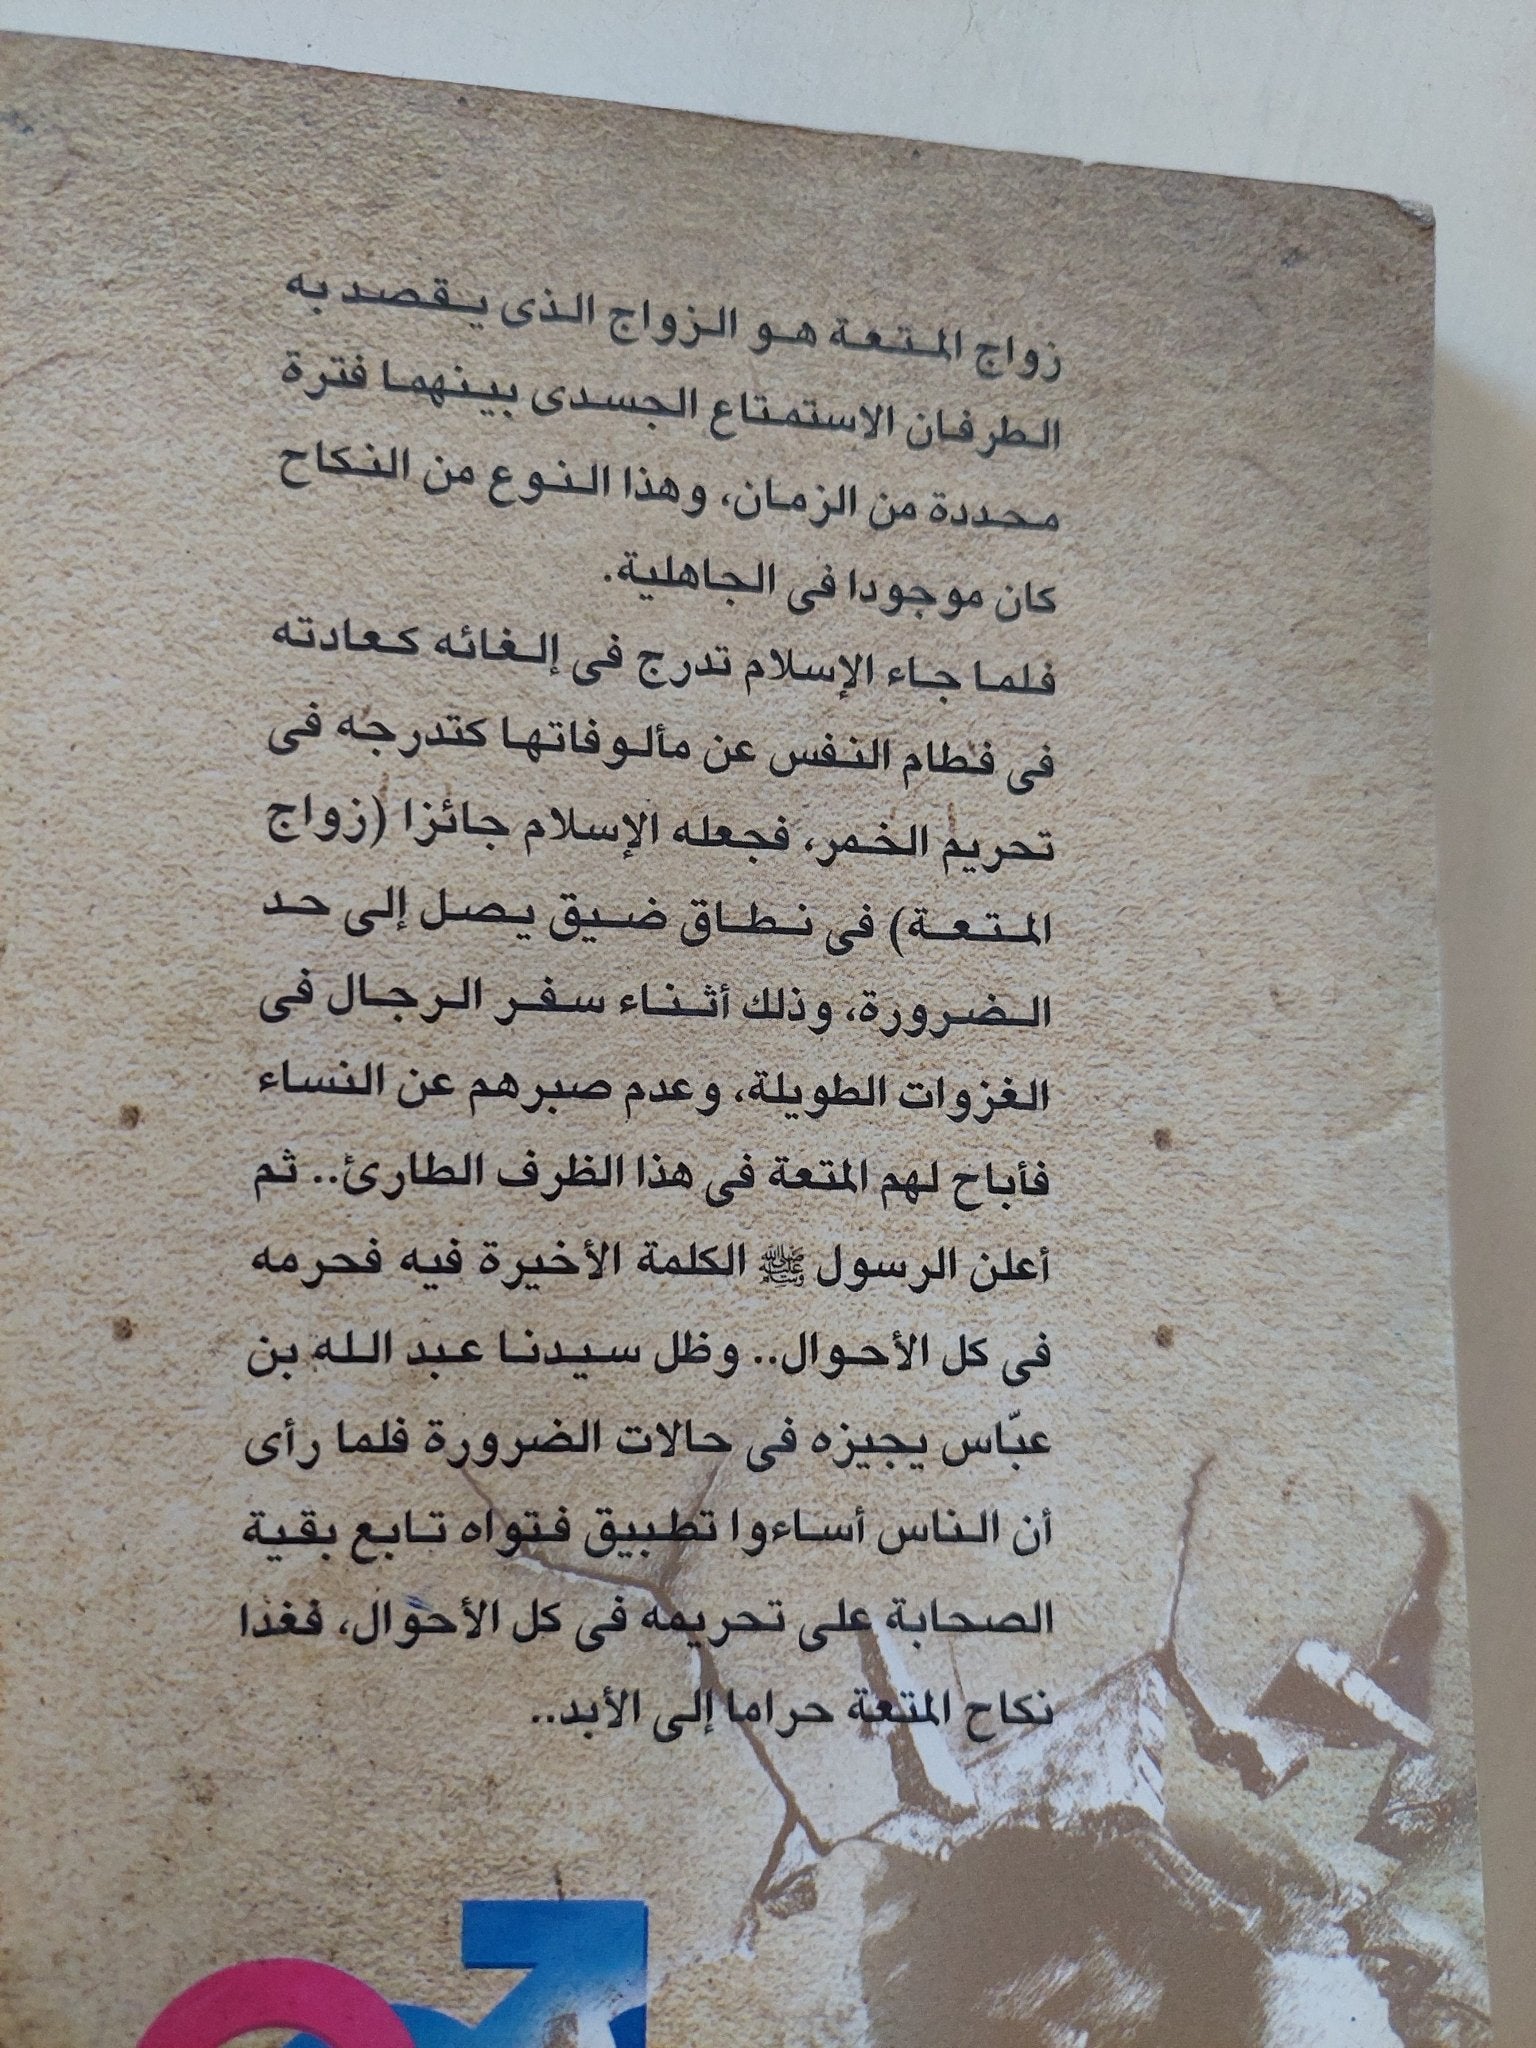 زواج المتعة هو الزواج الذى يقصد به
الطرفان الاستمتاع الجسدى بينهما فترة
محددة من الزمان، وهذا النوع من النكاح
كان موجودا فى الجاهلية.
فلما جاء الإسلام تدرج فى إلغائه كعادته
فى فطام النفس عن مألوفاتها كتدرجه فى
تحريم الخمر، فجعله الإسلام جائزا (زواج
المتعة) فى نطاق ضيق يصل إلى حد
الضرورة، وذلك أثناء سفر الرجال فى
الغزوات الطويلة، وعدم صبرهم عن النساء
فأباح لهم المتعة فى هذا الظرف الطارئ.. ثم
أعلن الرسول ﷺ الكلمة الأخيرة فيه فحرمه
فى كل الأحوال.. وظل سيدنا عبد الله بن
عبّاس يجيزه فى حالات الضرورة فلما رأى
أن الناس أساءوا تطبيق فتواه تابع بقية
الصحابة على تحريمه فى كل الأحوال، فغدا
نكاح المتعة حراما إلى الأبد..